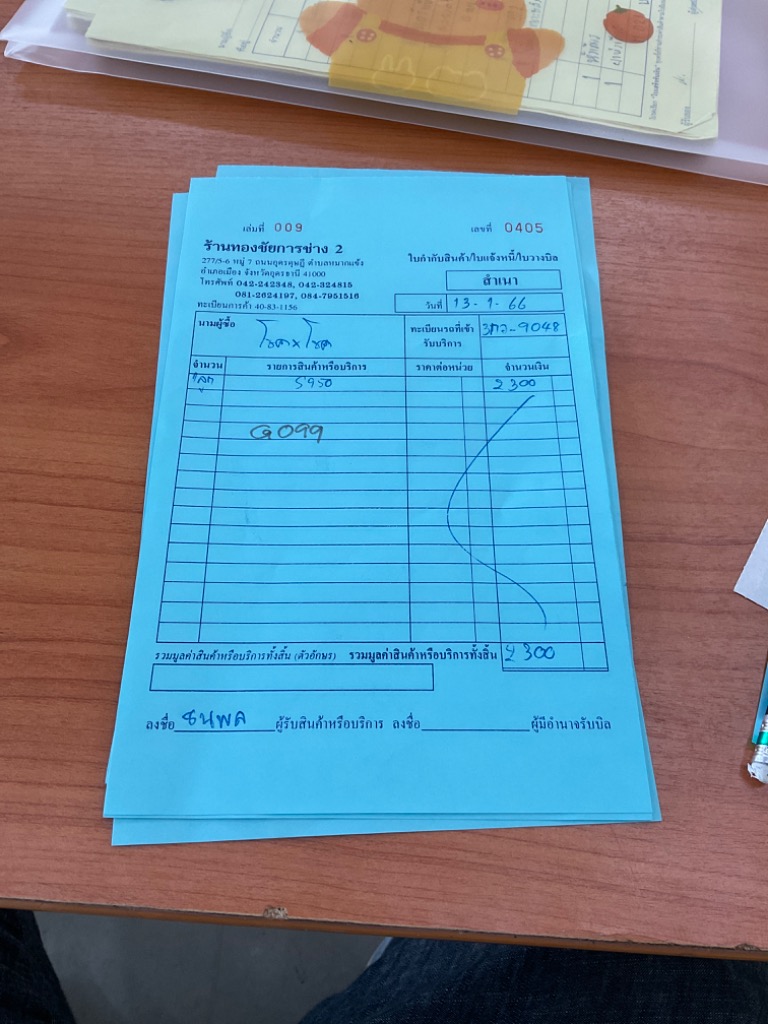 เล่มที่ 009
เลขที่ 0405
ร้านทองชัยการช่าง 2
277/5-6 หมู่ 7 ถนนอุดรดุษฎี ตำบลหมากแข้ง
อำเภอเมือง จังหวัดอุดรธานี 41000
โทรศัพท์ 042-242348, 042-324815
081-2624197, 084-7951516
ทะเบียนการค้า 40-83-1156
ใบกำกับสินค้า/ใบแจ้งหนี้/ใบวางบิล
สำเนา
วันที่ 13-1-66
นามผู้ซื้อ โชค x โชค
ทะเบียนรถที่เข้ารับบริการ -9048
จำนวน รายการสินค้าหรือบริการ ราคาต่อหน่วย จำนวนเงิน
5950 2300
G099
รวมมูลค่าสินค้าหรือบริการทั้งสิ้น (ตัวอักษร) รวมมูลค่าสินค้าหรือบริการทั้งสิ้น 2300
ลงชื่อ ธนพล ผู้รับสินค้าหรือบริการ ลงชื่อ ผู้มีอำนาจรับบิล